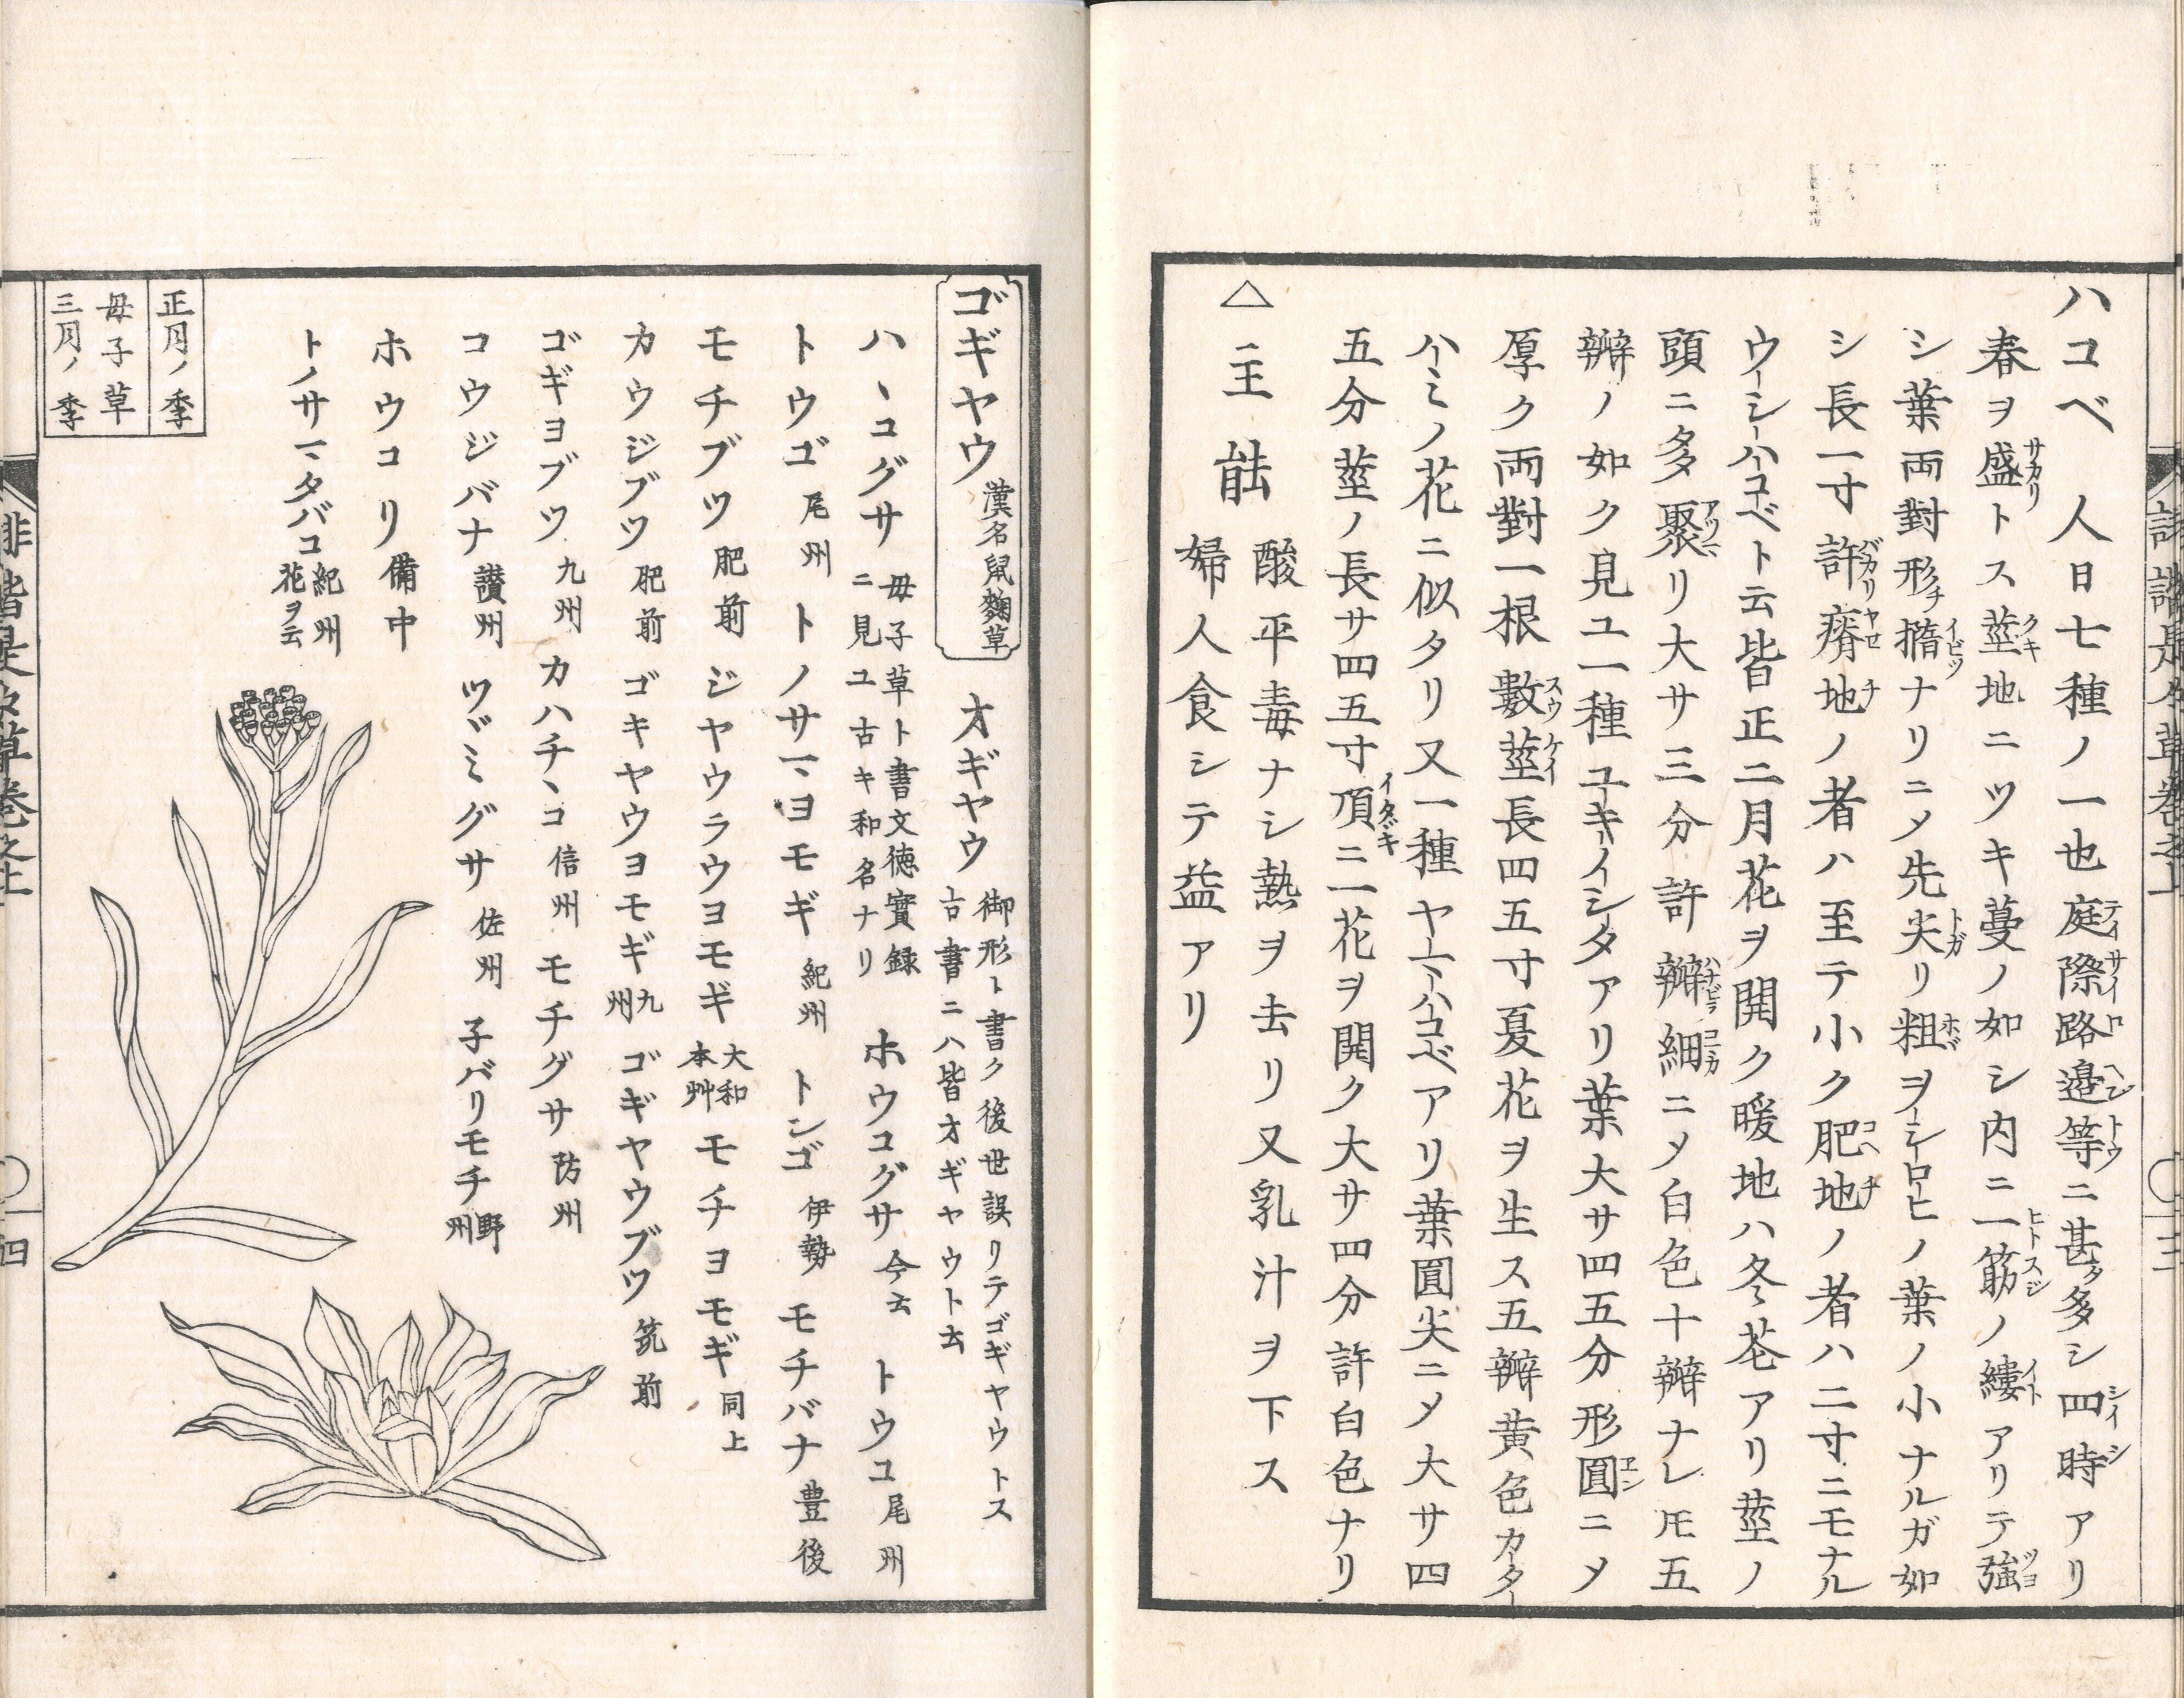 ハコベ 人日七種ノ一也庭際路邉等ニ甚タ多シ四時アリ
春ヲ盛トス莖地ニツキ蔓ノ如シ内ニ一筋ノ縷アリテ強
シ葉両對形チ撱ナリニメ先尖リ粗ヲシロヒノ葉ノ小ナルガ如
シ長一寸許瘠地ノ者ハ至テ小ク肥地ノ者ハ二寸ニモナル
ウシハコベト云皆正二月花ヲ開ク暖地ハ冬花アリ莖ノ
頭ニ多ク聚リ大サ三分許辧細ニメ白色十辧ナレ𪜈五
辧ノ如ク見ユ一種ユキイシタアリ葉大サ四五分形圓ニメ
厚ク両對一根數莖長四五寸夏花ヲ生ス五辧黄色カタ
ハミノ花ニ似タリ又一種ヤマハコベアリ葉圓尖ニメ大サ四
五分莖ノ長サ四五寸頂ニ一花ヲ開ク大サ四分許白色ナリ
△主 䏻
酸平毒ナシ熱ヲ去リ又乳汁ヲ下ス
婦人食シテ益アリ
ゴギヤウ 漢名鼠麹草
オギヤウ 御形ト書ク後世誤リテゴギヤウトス
古書ニハ皆オギヤウト云
ハヽコグサ 母子草ト書文徳實録
ニ見ユ古キ和名ナリ
ホウコグサ 今云 トウコ 尾州
トウゴ 尾州 トノサマヨモギ 紀州 トンゴ 伊勢 モチバナ 豊後
モチブツ 肥前 ジヤウラウヨモギ 大和本艸 モチヨモギ 同上
カウジブツ 肥前 ゴキヤウヨモギ 九州 ゴギヤウブツ 筑前
ゴギヨブツ 九州 カハチヽコ 信州 モチグサ 防州
コウジバナ 讃州 ツヾミグサ 佐州 子バリモチ 野州
ホウコリ 備中
トノサマタバコ 紀州花ヲ云
正月ノ季
母子草
三月ノ季